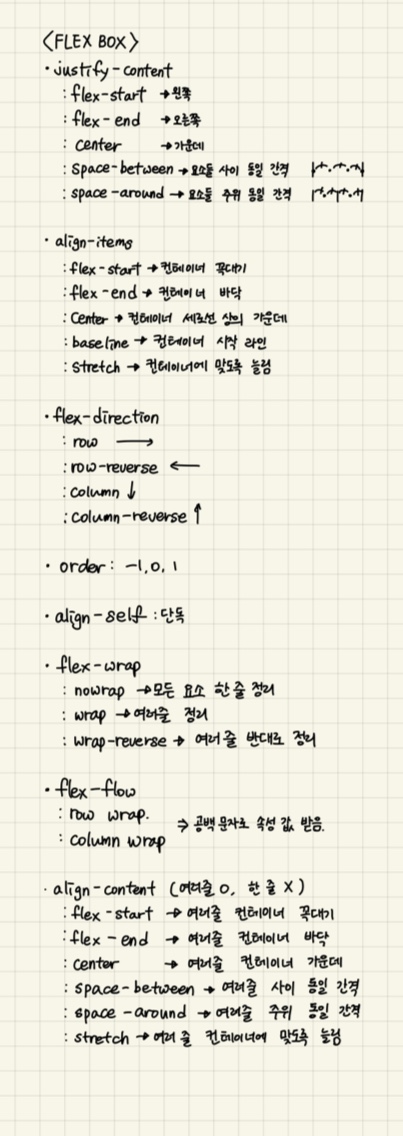 <FLEX BOX>
· justify-content
: flex-start → 왼쪽
: flex-end → 오른쪽
: center → 가운데
: space-between → 요소들 사이 동일 간격
: space-around → 요소들 주위 동일 간격
· align-items
: flex-start → 컨테이너 꼭대기
: flex-end → 컨테이너 바닥
: center → 컨테이너 세로선 상의 가운데
: baseline → 컨테이너 시작 라인
: stretch → 컨테이너에 맞도록 늘림
· flex-direction
: row →
: row-reverse ←
: column ↓
: column-reverse ↑
· order : -1, 0, 1
· align-self : 단독
· flex-wrap
: nowrap → 모든 요소 한 줄 정리
: wrap → 여러줄 정리
: wrap-reverse → 여러 줄 반대로 정리
· flex-flow
: row wrap.
: column wrap
⇒ 공백 문자로 속성 값 받음.
· align-content (여러줄 O, 한 줄 X)
: flex-start → 여러줄 컨테이너 꼭대기
: flex-end → 여러줄 컨테이너 바닥
: center → 여러줄 컨테이너 가운데
: space-between → 여러줄 사이 동일 간격
: space-around → 여러줄 주위 동일 간격
: stretch → 여러 줄 컨테이너에 맞도록 늘림